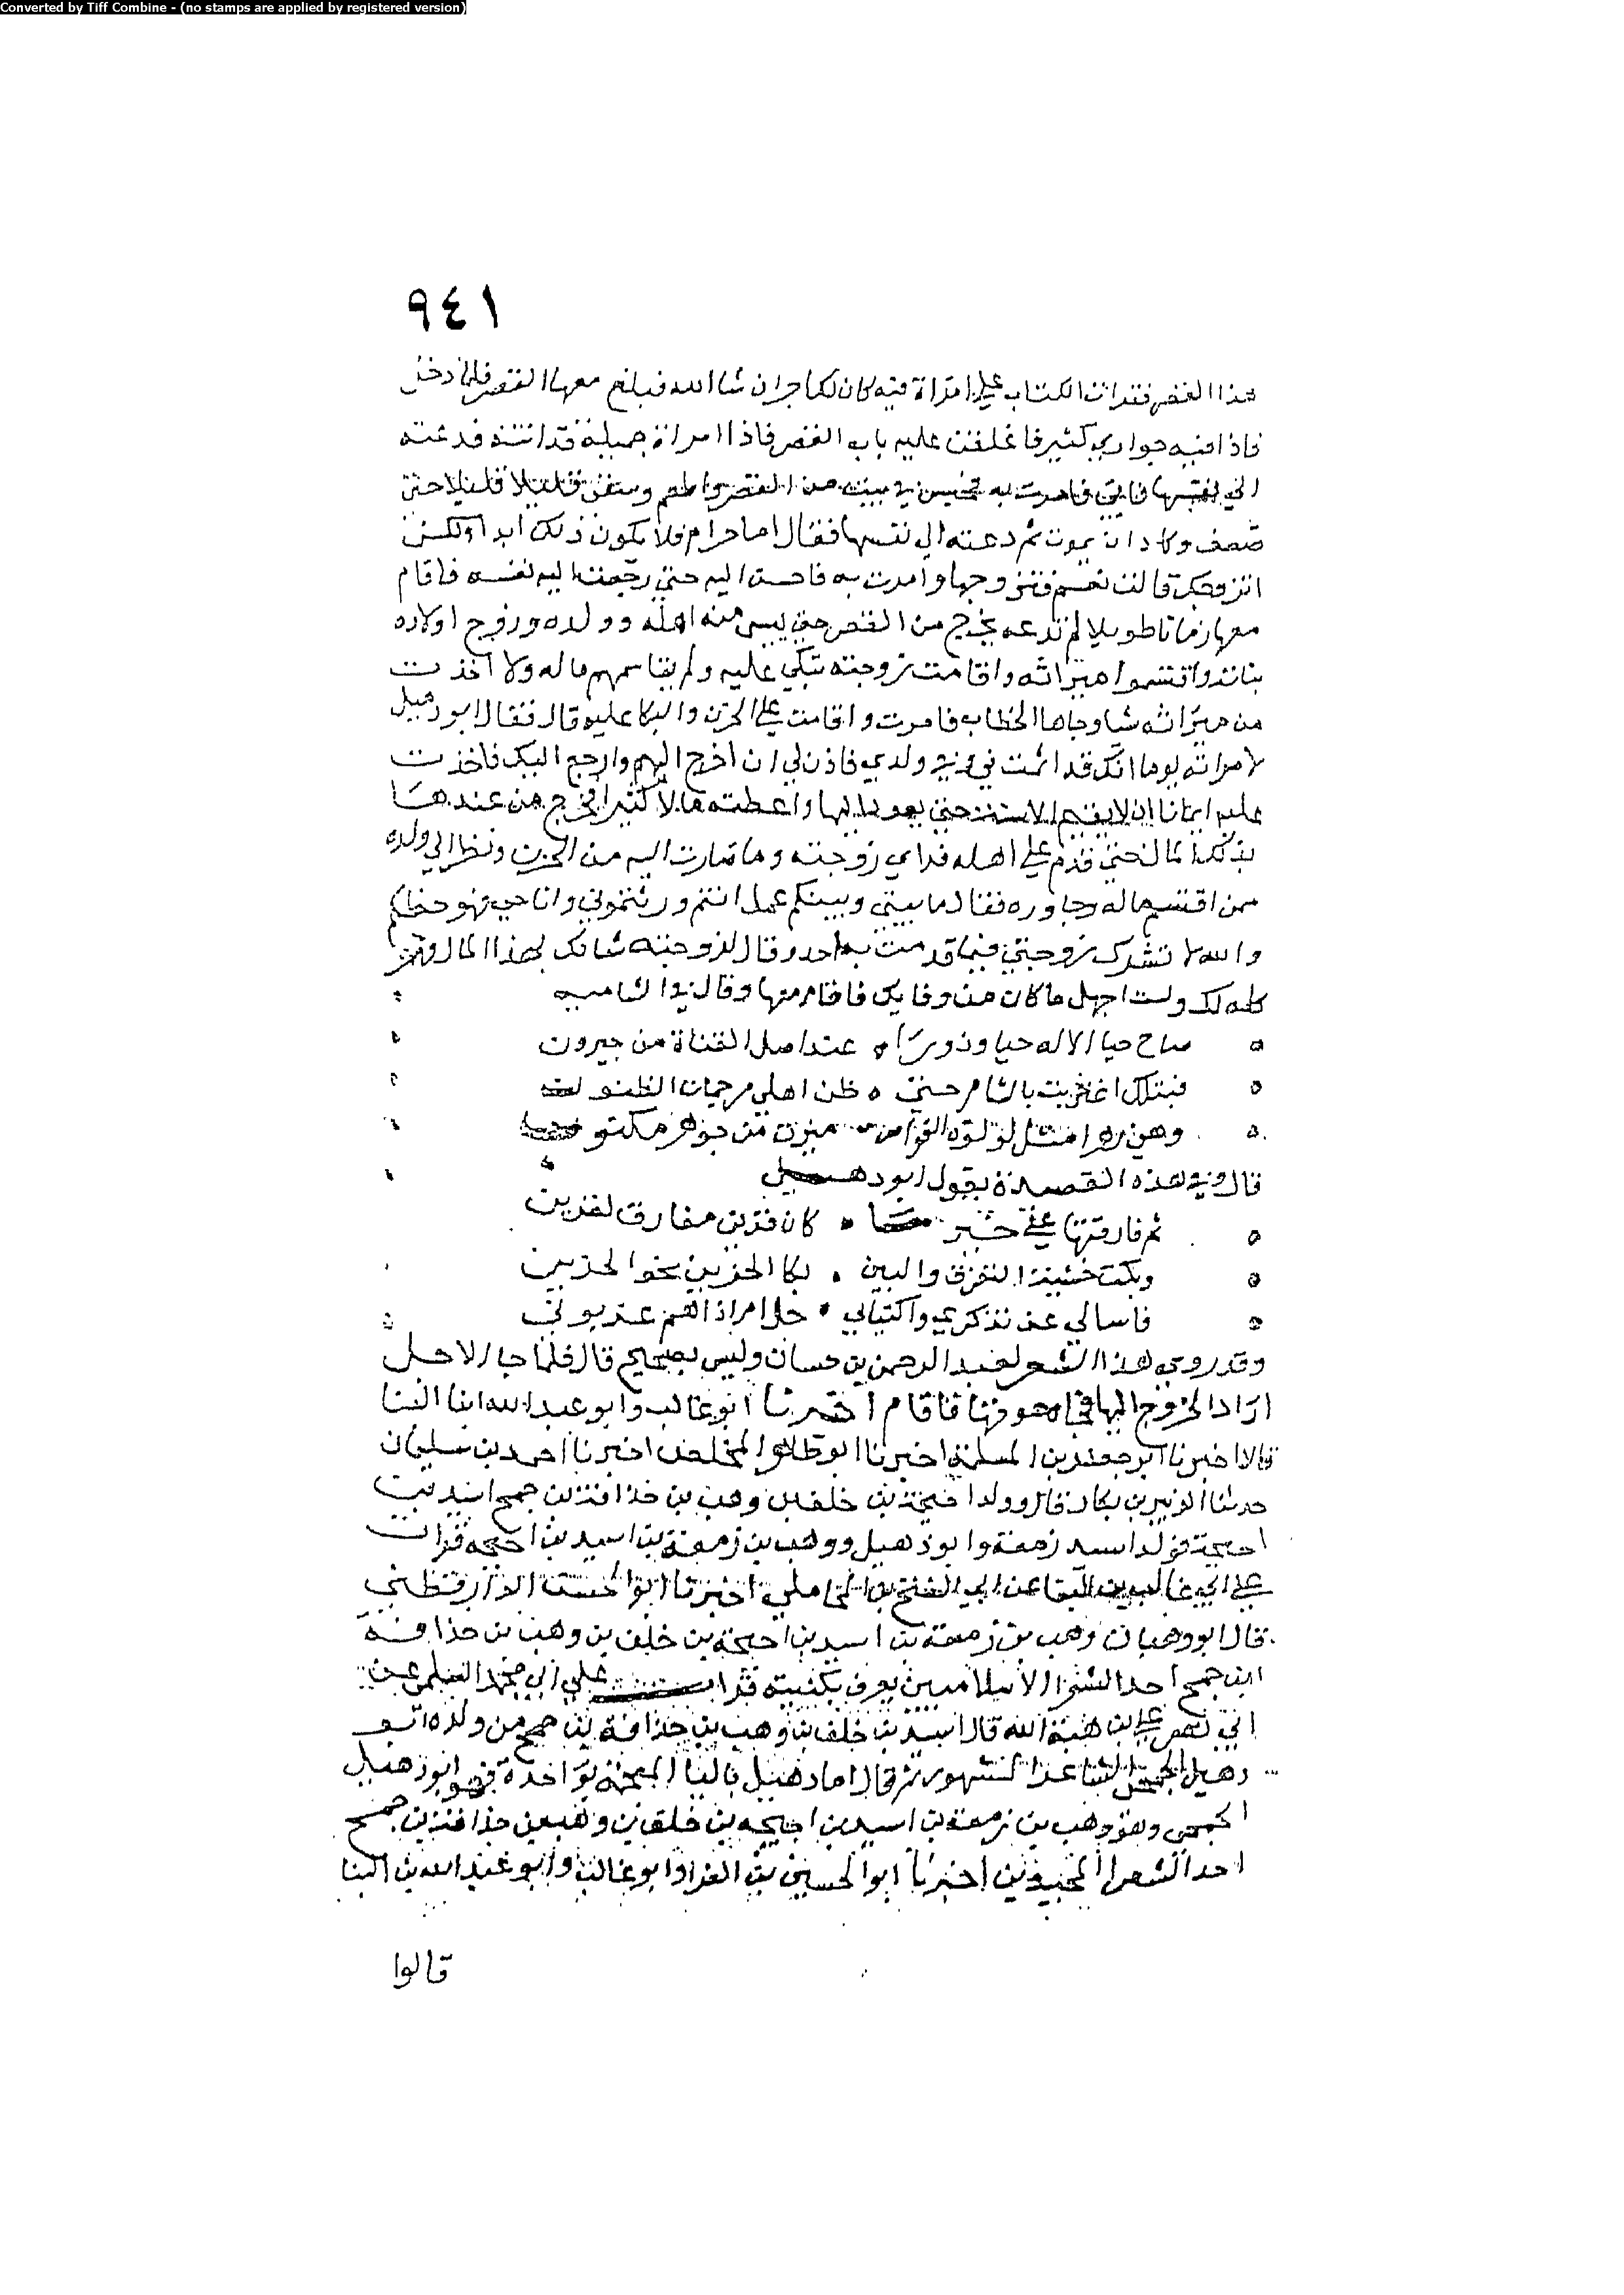 Converted by Tiff Combine - (no stamps are applied by registered version)
٩٤١
هذا القصر فقرات الكتاب على امراة فيه كان لك اجر ان شا الله فبلغ معها القصر فلما دخل
فاذا فيه جواري كثير فاغلقت عليه باب القصر فاذا امراة جميلة قد اتته فدعته
الى نفسها فابى فامرت به فحبس في بيت من القصر واطعم وسقى قليلا قليلا حتى
ضعف وكاد ان يموت ثم دعته الى نفسها فقال اما حرام فلا يكون ذلك ابدا ولكن
اتزوجك قالت نعم فتزوجها وامرت به فاحسن اليه حتى رجعت اليه نفسه فاقام
معها زمانا طويلا لم تدعه يخرج من القصر حتى يس منه اهله وولده وزوج اولاده
بناته واقتسموا ميراثه واقامت زوجته تبكي عليه ولم يقاسمهم ماله ولا اخذت
من ميراثه شا وجاها الخطاب فامرت واقامت على الحزن والبكا عليه قال فقال ابو دهبل
لامراته يوما انك قد اثمت في وفي ولدي فاذن لي ان اخرج اليهم وارجع اليك فاخذت
عليه ايمانا ان لا يقيم الا سنة حتى يعود اليها واعطته مالا كثيرا فخرج من عندها
بذلك المال حتى قدم على اهله فراى زوجته وما صارت اليه من الحزن ونظر الى ولده
ممن اقتسم ماله وجاوره فقال ما بيني وبينكم عمل انتم ورثتموني وانا حي فهو حظكم
والله لا تشرك زوجتي فيما قدمت به احد وقال لزوجته شانك بهذا المال فهو
كله لك ولست اجهل ما كان من وفايك فاقام معها وقال في الشامية
صاح حيا الاله حيا ودورا ٥ عند اصل القناة من جيرون
فبتلك اغتربت بالشام حتى ٥ ظن اهلي مرجمات الظنون
وهي زهرا مثل لولوة الغواص ميزت من جوهر مكنون
قال وفي هذه القصيدة يقول ابو دهبل
ثم فارقتها على خير ما ٥ كان قرين مفارق لقرين
وبكت خشية التفرق والبين ٥ بكا الحزين نحو الحزين
فاسالي عن تذكري واكتيابي ٥ جل امر اذا هم عذلوني
وقد روي هذا الشعر لعبد الرحمن بن حسان وليس بصحيح قال فلما جا الاجل
اراد الخروج اليها فجاه موتها فاقام اخبرنا ابو غالب وابو عبد الله ابنا البنا
قالا اخبرنا ابو جعفر بن المسلمة اخبرنا ابو طاهر المخلص اخبرنا احمد بن سليمان
حدثنا الزبير بن بكار قال وولد احيحة بن خلف بن وهب بن حذافة بن جمح اسيد بن
احيحة فولد اسيد زمعة وابو دهبل ووهب بن زمعة بن اسيد بن احيحه قرات
على ابي غالب بن البنا عن ابي الفتح بن المحاملي اخبرنا ابو الحسن الدارقطني
قال ابو دهبل وهب بن زمعة بن اسيد بن احيحة بن خلف بن وهب بن حذافة
ابن جمح احد الشعرا الاسلاميين يعرف بكنيته قرات على ابي محمد السلمي عن
ابي نصر علي بن هبة الله قال اسيد بن خلف بن وهب بن حذافة بن جمح من ولده ابو
دهبل الجمحي الشاعر المشهور ثم قال اما دهبل بالبا المعجمة بواحدة فهو ابو دهبل
الجمحي وهو وهب بن زمعة بن اسيد بن احيحه بن خلف بن وهب بن حذافة بن جمح
احد الشعرا المجيدين اخبرنا ابو الحسين بن الفرا وابو غالب وابو عبد الله بن البنا
قالوا